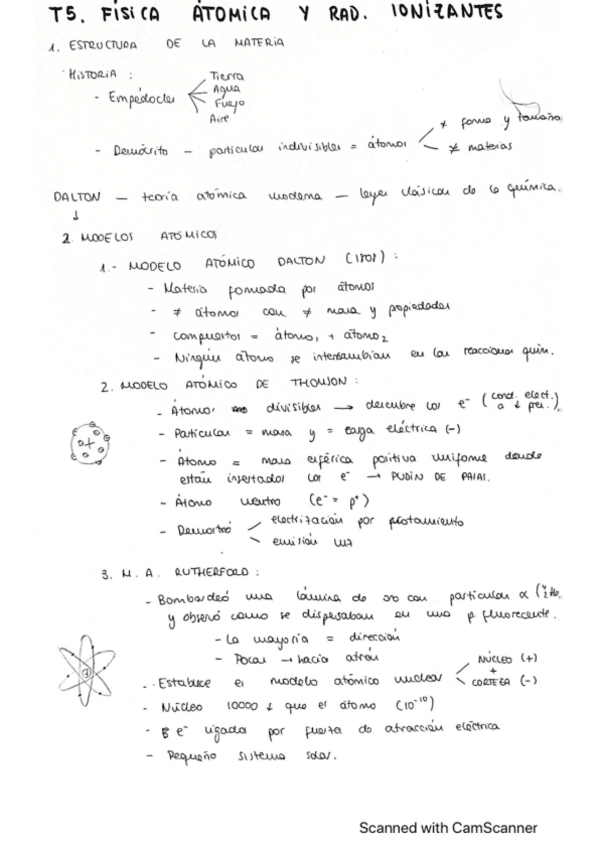 T5. FÍSICA ÁTOMICA Y RAD. IONIZANTES
1. ESTRUCTURA DE LA MATERIA
· HISTORIA :
- Empédocles
Tierra
Agua
Fuejo
Aire
- Demócrito - particulas indivisibles = átomos
≠ forma y tamaño
≠ materias
DALTON - teoría atómica moderna - leyes clásicas de la química.
↓
2. MODELOS ATÓMICOS
1.- MODELO ATÓMICO DALTON (1808) :
- Materia formada por átomos
- ≠ átomos con ≠ masa y propiedades
- compuestos = átomo₁ + átomo₂
- Ningún átomo se intercambian en las reacciones quím.
2. MODELO ATÓMICO DE THOMSON :
- Átomos divisibles → descubre los e⁻ (cond. elect. a ↓ pres.)
- Particulas = masa y = carga eléctrica (-)
- Átomo = masa esférica positiva uniforme donde
están insertados los e⁻ → PUDIN DE PASAS.
- Átomo neutro (e⁻ = p⁺)
- Demostró
electrización por frotamiento
emisión luz
3. M. A. RUTHERFORD :
- Bombardeó una lámina de oro con particulas α (⁴₂He
y observó como se dispersaban en una p. fluorecente.
- La mayoría = dirección
- Pocas → hacia atrás
- Establece el modelo atómico nuclear
NÚCLEO (+)
+
CORTEZA (-)
- Núcleo 10000 ↓ que el átomo (10⁻¹⁰)
- e⁻ ligada por fuerza de atracción eléctrica
- Pequeño sistema solar.
Scanned with CamScanner